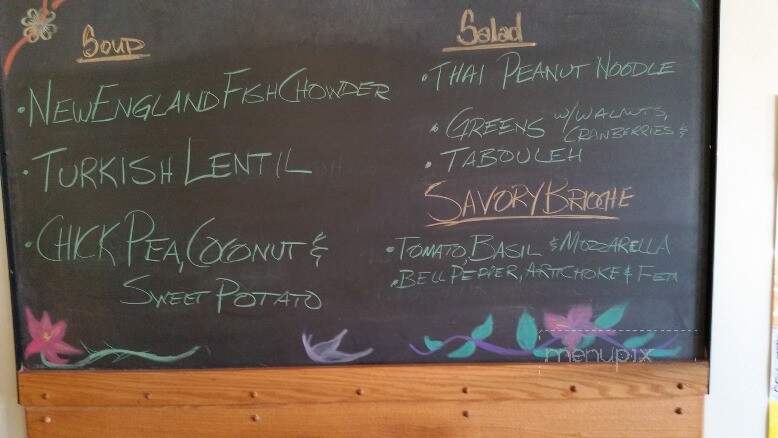 Soup
• NEW ENGLAND FISH CHOWDER
• TURKISH LENTIL
• CHICK PEA, COCONUT &
SWEET POTATO
Salad
• THAI PEANUT NOODLE
• GREENS W/WALNUTS,
CRANBERRIES &
• TABOULEH
SAVORY BRIOCHE
• TOMATO, BASIL & MOZZARELLA
• BELL PEPPER, ARTICHOKE & FETA
menupix